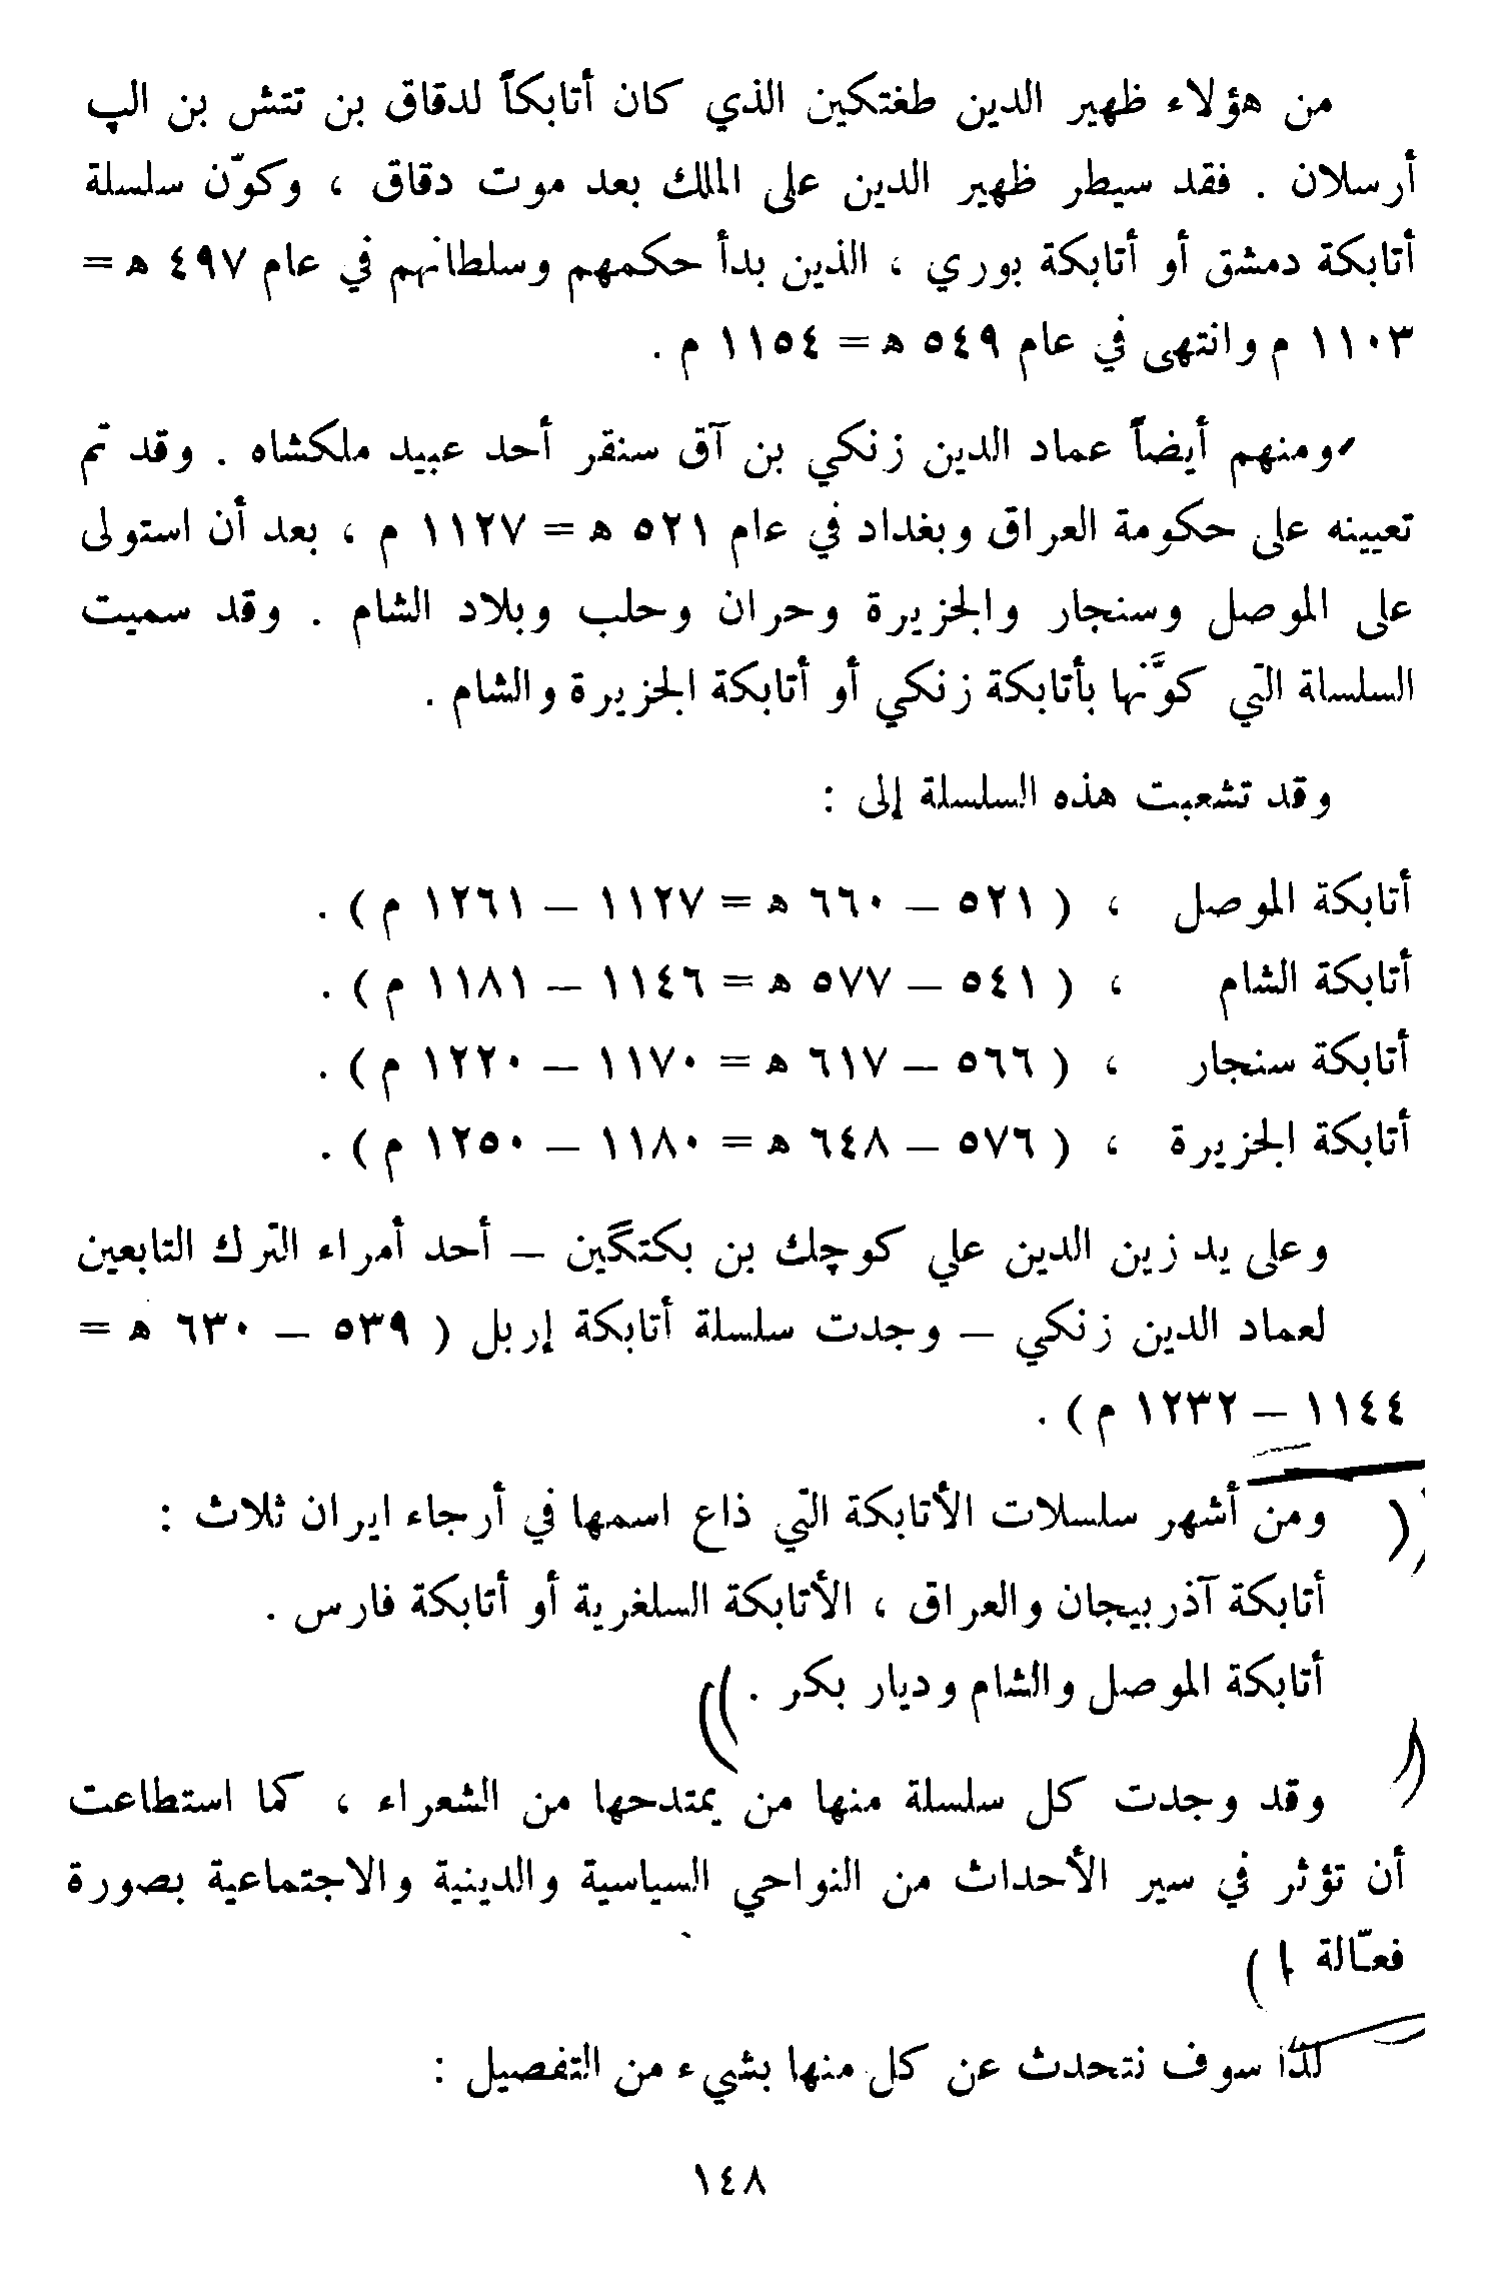 من هؤلاء ظهير الدين طغتكين الذي كان أتابكاً لدقاق بن تتش بن الپ
أرسلان . فقد سيطر ظهير الدين على الملك بعد موت دقاق ، وكوّن سلسلة
أتابكة دمشق أو أتابكة بوري ، الذين بدأ حكمهم وسلطانهم في عام ٤٩٧ ه =
١١٠٣ م وانتهى في عام ٥٤٩ ه = ١١٥٤ م .
ومنهم أيضاً عماد الدين زنكي بن آق سنقر أحد عبيد ملكشاه . وقد تم
تعيينه على حكومة العراق وبغداد في عام ٥٢١ ه = ١١٢٧ م ، بعد أن استولى
على الموصل وسنجار والجزيرة وحران وحلب وبلاد الشام . وقد سميت
السلسلة التي كوَّنها بأتابكة زنكي أو أتابكة الجزيرة والشام .
وقد تشعبت هذه السلسلة إلى :
أتابكة الموصل ، ( ٥٢١ – ٦٦٠ ه = ١١٢٧ – ١٢٦١ م ) .
أتابكة الشام ، ( ٥٤١ – ٥٧٧ ه = ١١٤٦ – ١١٨١ م ) .
أتابكة سنجار ، ( ٥٦٦ – ٦١٧ ه = ١١٧٠ – ١٢٢٠ م ) .
أتابكة الجزيرة ، ( ٥٧٦ – ٦٤٨ ه = ١١٨٠ – ١٢٥٠ م ) .
وعلى يد زين الدين علي كوچك بن بكتگين – أحد أمراء الترك التابعين
لعماد الدين زنكي – وجدت سلسلة أتابكة إربل ( ٥٣٩ – ٦٣٠ ه =
١١٤٤ – ١٢٣٢ م ) .
ومن أشهر سلسلات الأتابكة التي ذاع اسمها في أرجاء ايران ثلاث :
أتابكة آذربيجان والعراق ، الأتابكة السلغرية أو أتابكة فارس .
أتابكة الموصل والشام وديار بكر .
وقد وجدت كل سلسلة منها من يمتدحها من الشعراء ، كما استطاعت
أن تؤثر في سير الأحداث من النواحي السياسية والدينية والاجتماعية بصورة
فعّالة
لذا سوف نتحدث عن كل منها بشيء من التفصيل :
١٤٨